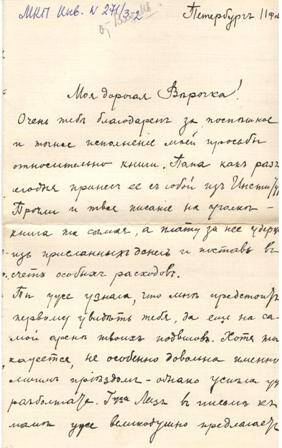 МКП Инв. N 271/3-2
Петербургъ 11 фе
Моя дорогая Вѣрочка!
Очень тебѣ благодаренъ за поспѣшное
и точное исполненіе моей просьбы
относительно книги. Папа какъ разъ
сегодня принесъ ее съ собой изъ Инсти
Прочли и твое писаніе на
книга та самая, а плату за нее удержи
изъ присланныхъ денегъ и поставь въ
счетъ особыхъ расходовъ.
Ты уже узнала, что мнѣ предстоитъ
первому увидѣть тебя, да еще на са
мой аренѣ твоихъ подвиговъ. Хотя ты
кажется, не особенно довольна именно
моимъ проѣздомъ - однако успѣла ужъ
разболтать. Лиза въ письмѣ къ
мамѣ уже великодушно предлагаетъ